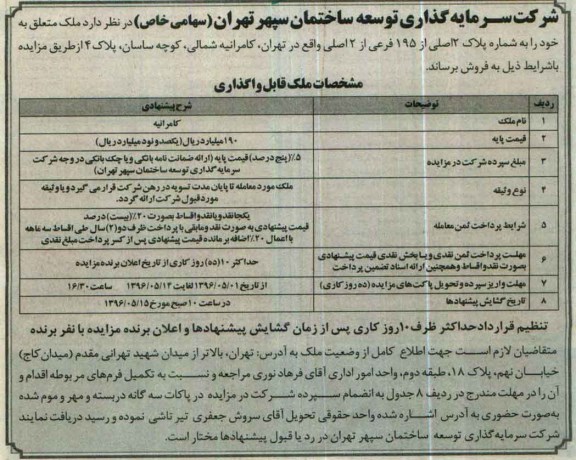 شرکت سرمایه گذاری توسعه ساختمان سپهر تهران (سهامی خاص) در نظر دارد ملک متعلق به
خود را به شماره پلاک ۲اصلی از ۱۹۵ فرعی از ۲ اصلی واقع در تهران، کامرانیه شمالی، کوچه ساسان، پلاک ۴ از طریق مزایده
باشرایط ذیل به فروش برساند.
مشخصات ملک قابل واگذاری
ردیف توضیحات شرح پیشنهادی
۱ نام ملک کامرانیه
۲ قیمت پایه ۱۹۰میلیارد ریال (یکصد و نود میلیارد ریال)
۳ مبلغ سپرده شرکت در مزایده ۵٪(پنج درصد) قیمت پایه (ارائه ضمانت نامه بانکی و یا چک بانکی در وجه شرکت
سرمایه گذاری توسعه ساختمان سپهر تهران)
۴ نوع وثیقه ملک مورد معامله تا پایان مدت تسویه در رهن شرکت قرار می گیرد و یا وثیقه
مورد قبول شرکت ارائه گردد.
۵ شرایط پرداخت ثمن معامله یکجا نقد و یا نقد و اقساط بصورت ۲۰٪(بیست) درصد
قیمت پیشنهادی به صورت نقد و مابقی با پرداخت ظرف دو (۲) سال طی اقساط سه ماهه
با اعمال ۲۰٪ اضافه بر مانده قیمت پیشنهادی پس از کسر پرداخت مبلغ نقدی
۶ مهلت پرداخت ثمن نقدی و یا بخش نقدی قیمت پیشنهادی
بصورت نقد و اقساط و همچنین ارائه اسناد تضمین پرداخت حداکثر ۱۰ (ده) روز کاری از تاریخ اعلان برنده مزایده
۷ مهلت واریز سپرده و تحویل پاکت های مزایده (ده روز کاری) از تاریخ ۱۳۹۶/۰۵/۰۱ لغایت ۱۳۹۶/۰۵/۱۲ ساعت ۱۶/۳۰
۸ تاریخ گشایش پیشنهادها در ساعت ۱۰ صبح مورخ ۱۳۹۶/۰۵/۱۵
تنظیم قرارداد حداکثر ظرف ۱۰ روز کاری پس از زمان گشایش پیشنهادها و اعلان برنده مزایده با نفر برنده
متقاضیان لازم است جهت اطلاع کامل از وضعیت ملک به آدرس: تهران، بالاتر از میدان شهید تهرانی مقدم (میدان کاج)
خیابان نهم، پلاک ۱۸، طبقه دوم، واحد امور اداری آقای فرهاد نوری مراجعه و نسبت به تکمیل فرم های مربوطه اقدام و
آن را در مهلت مندرج در ردیف ۸ جدول به انضمام سپرده شرکت در مزایده در پاکات سه گانه دربسته و مهر و موم شده
به صورت حضوری به آدرس اشاره شده واحد حقوقی تحویل آقای سروش جعفری تیر تاشی نموده و رسید دریافت نمایند
شرکت سرمایه گذاری توسعه ساختمان سپهر تهران در رد یا قبول پیشنهادها مختار است.